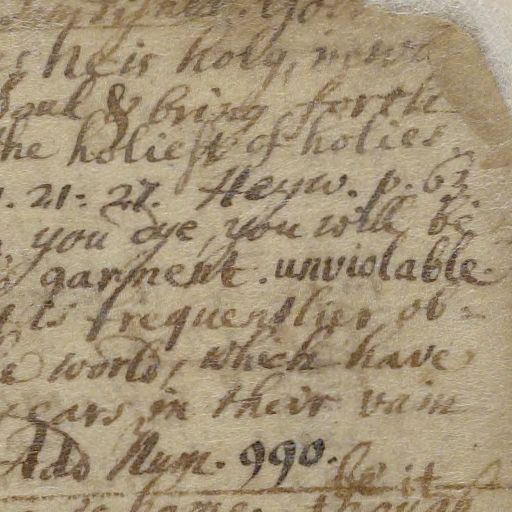 as he is holy, inward
Soul & bring forth
the holiest of holies.
1. 21: 27. Heyw. p. 63
you dye, you will be
garment. unviolable
is frequentlier ob=
world, which have
years in their vain
Add Num. 990.
be it
though